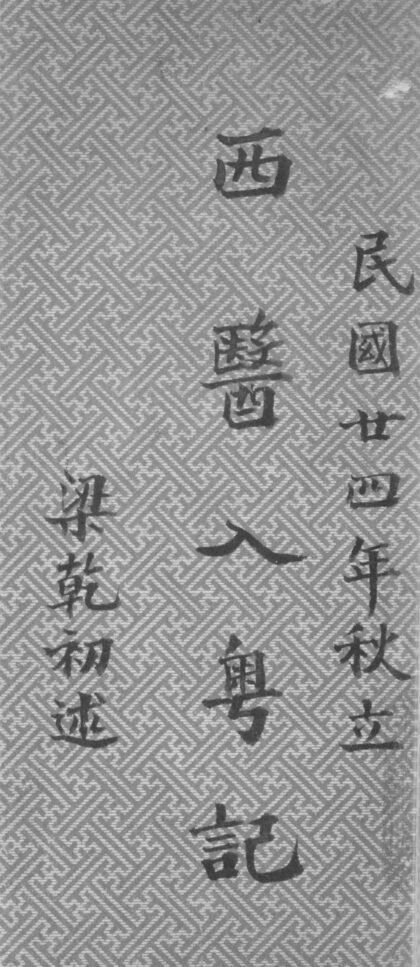 民國廿四年秋立
西醫入粤記
梁乾初述